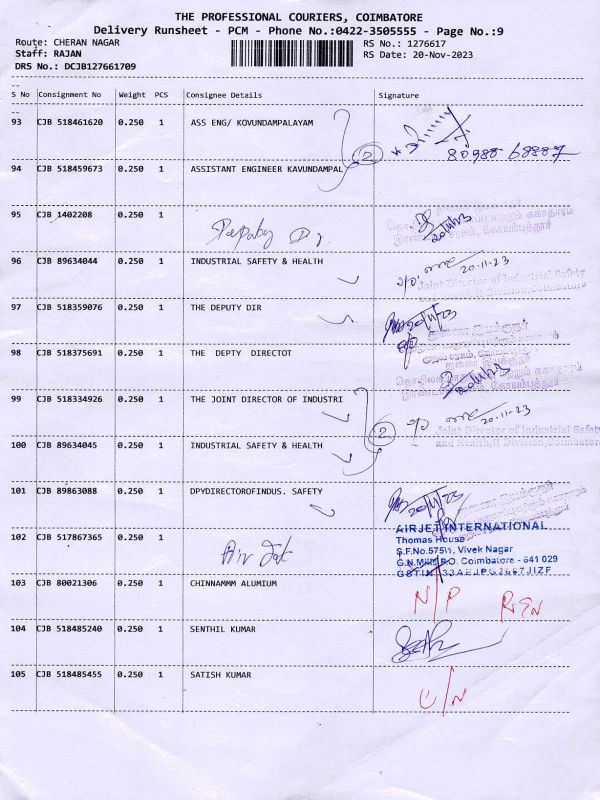 THE PROFESSIONAL COURIERS, COIMBATORE
Delivery Runsheet - PCM - Phone No.:0422-3505555 - Page No.:9
Route: CHERAN NAGAR RS No.: 1276617
Staff: RAJAN RS Date: 20-Nov-2023
DRS No.: DCJB127661709
S No Consignment No Weight PCS Consignee Details Signature
93 CJB 518461620 0.250 1 ASS ENG/ KOVUNDAMPALAYAM
80988 68887
94 CJB 518459673 0.250 1 ASSISTANT ENGINEER KAVUNDAMPAL
2
95 CJB 1402208 0.250 1
20/11/23
96 CJB 89634044 0.250 1 INDUSTRIAL SAFETY & HEALTH 20-11-23
Joint Director of Industrial Safety
97 CJB 518359076 0.250 1 THE DEPUTY DIR
98 CJB 518375691 0.250 1 THE DEPTY DIRECTOT
99 CJB 518334926 0.250 1 THE JOINT DIRECTOR OF INDUSTRI
20-11-23
2
Joint Director of Industrial Safety
and Health,II Division,Coimbatore
100 CJB 89634045 0.250 1 INDUSTRIAL SAFETY & HEALTH
101 CJB 89863088 0.250 1 DPYDIRECTOROFINDUS. SAFETY
102 CJB 517867365 0.250 1 Air Jet
AIRJET INTERNATIONAL
Thomas House
S.F.No.575\1, Vivek Nagar
G.N.Mills P.O. Coimbatore - 641 029
103 CJB 80021306 0.250 1 CHINNAMMM ALUMIUM N/P
104 CJB 518485240 0.250 1 SENTHIL KUMAR
105 CJB 518485455 0.250 1 SATISH KUMAR
U/N